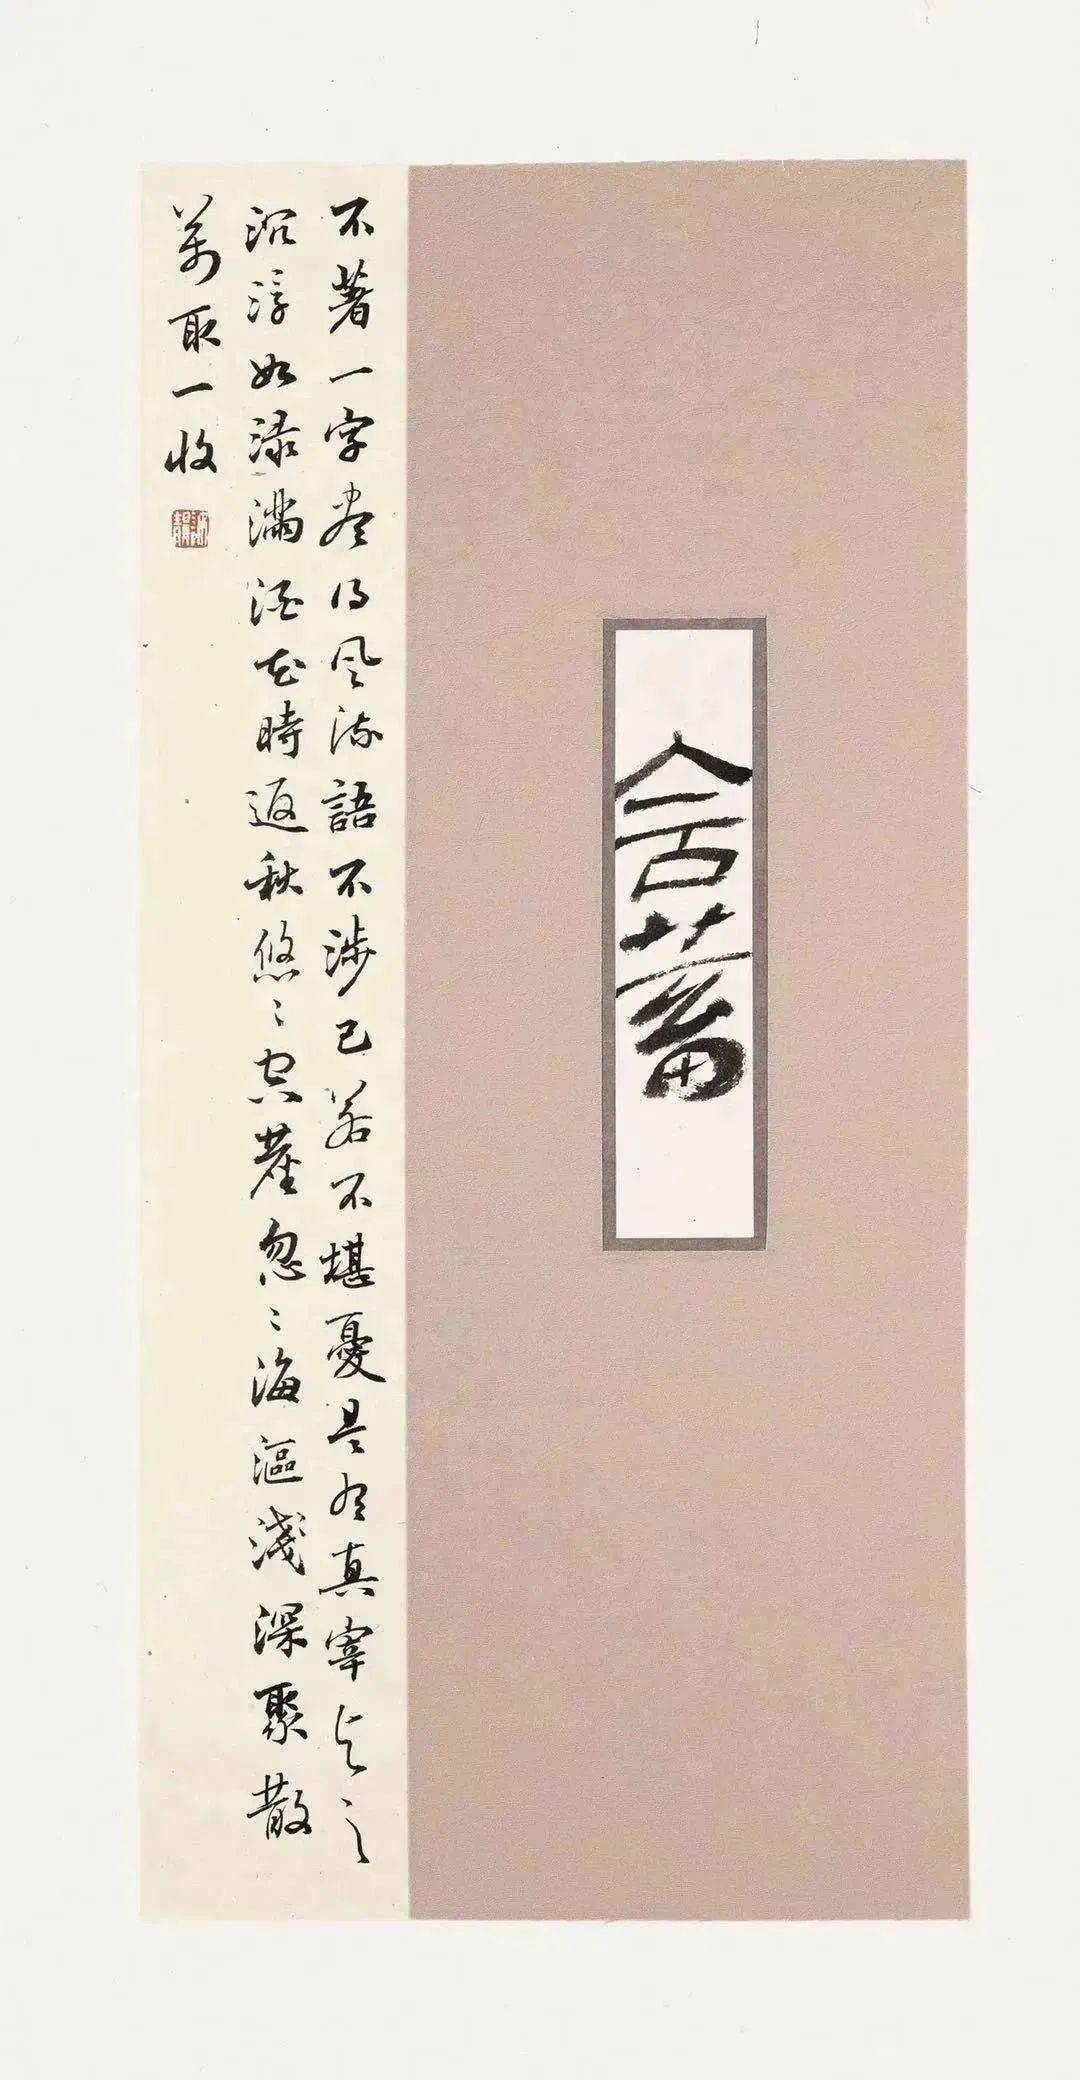 含蓄
不著一字盡得風流語不涉己若不堪憂是有真宰與之
沉浮如淥滿酒花時返秋悠〻空塵忽〻海漚淺深聚散
萬取一收